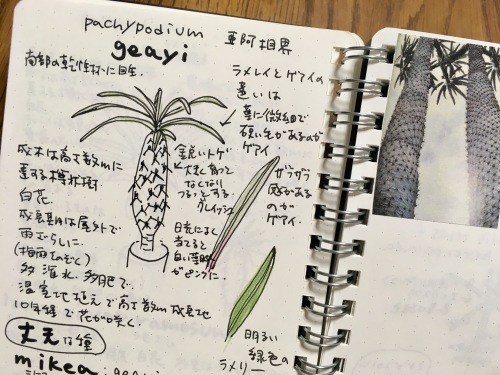 pachypodium
geayi 亜阿相界
南部の乾性林に自生.
ラメレイとゲアイの
違いは
葉に微細で
硬い毛があるのが
ゲアイ.
ザラザラ
感がある
のが
ゲアイ.
鋭いトゲ
大きく育つと
なくなり
つるっとする.
グレイッシュ
日光によく
当てると
白い葉脈
がピンクに.
成木は高さ数mに
達する樽状樹.
白花.
成長期は屋外で
雨ざらしに.
(梅雨をのぞく)
多灌水、多肥で.
温室地植えで高さ数m成長地
10年弱で花が咲く.
丈夫な種
明るい
緑色の
ラメリー
mikea